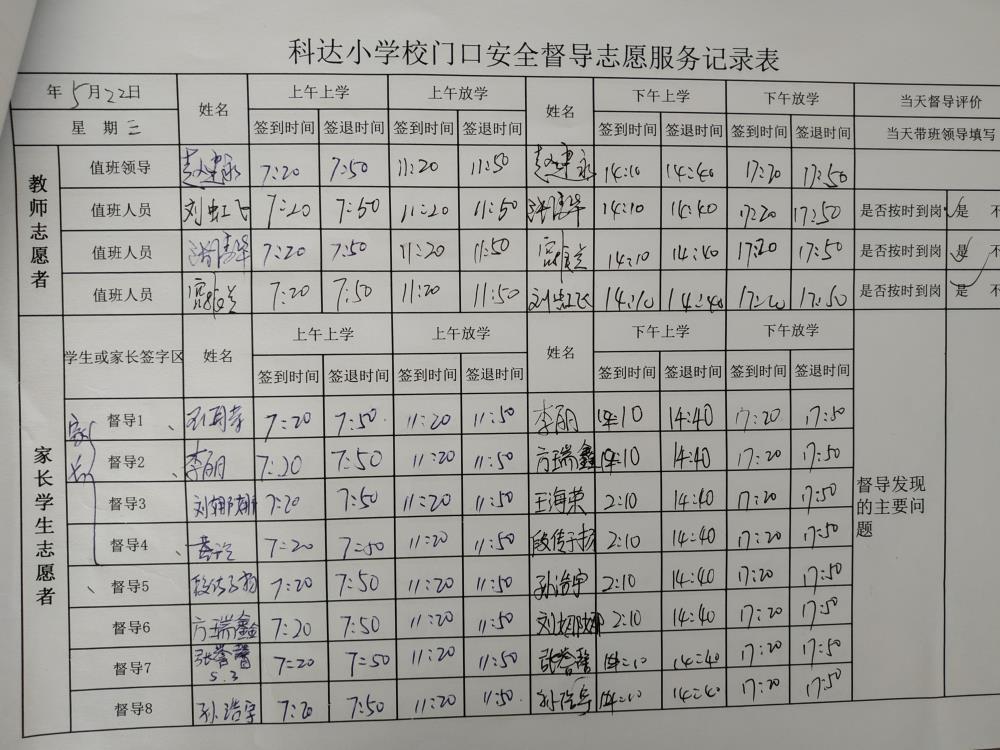 科达小学校门口安全督导志愿服务记录表
年5月22日 姓名 上午上学 上午放学 姓名 下午上学 下午放学 当天督导评价
星期三 签到时间 签退时间 签到时间 签退时间 签到时间 签退时间 签到时间 签退时间 当天带班领导填写
教师志愿者
值班领导 7:20 7:50 11:20 11:50 14:10 14:40 17:20 17:50
值班人员 刘虹飞 7:20 7:50 11:20 11:50 14:10 14:40 17:20 17:50 是否按时到岗 ✓是 不
值班人员 7:20 7:50 11:20 11:50 14:10 14:40 17:20 17:50 是否按时到岗 是 不
值班人员 7:20 7:50 11:20 11:50 刘虹飞 14:10 14:40 17:20 17:50 是否按时到岗 是 不
家长学生志愿者
学生或家长签字区 姓名 上午上学 上午放学 姓名 下午上学 下午放学
签到时间 签退时间 签到时间 签退时间 签到时间 签退时间 签到时间 签退时间
家长
督导1 7:20 7:50 11:20 11:50 李丽 14:10 14:40 17:20 17:50
督导2 李丽 7:20 7:50 11:20 11:50 方瑞鑫 14:10 14:40 17:20 17:50
督导3 7:20 7:50 11:20 11:50 王海荣 2:10 14:40 17:20 17:50
督导4 7:20 7:50 11:20 11:50 段传子扬 2:10 14:40 17:20 17:50
督导5 7:20 7:50 11:20 11:50 孙浩宇 2:10 14:40 17:20 17:50
督导6 方瑞鑫 7:20 7:50 11:20 11:50 2:10 14:40 17:20 17:50
督导7 张誉馨 5.3 7:20 7:50 11:20 11:50 张誉馨 14:10 14:40 17:20 17:50
督导8 孙浩宇 7:20 7:50 11:20 11:50 孙浩宇 14:10 14:40 17:20 17:50
督导发现的主要问题